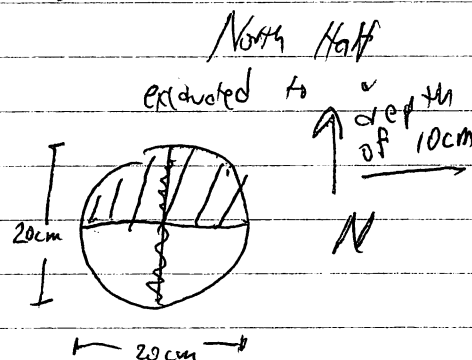 North Half
excavated to a
depth
of 10cm
20cm
N
20cm